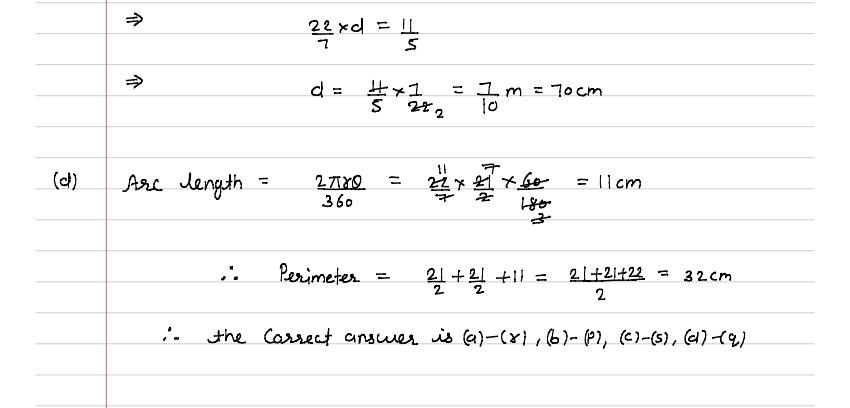 ⇒ 22/7 × d = 11/5
⇒ d = 11/5 × 7/22 2 = 7/10 m = 70 cm
(d) Arc length = 2πrθ/360 = 22/7 11 × 21/2 7 × 60/180 3 = 11 cm
∴ Perimeter = 21/2 + 21/2 + 11 = 21+21+22/2 = 32 cm
∴ the Correct answer is (a)-(r), (b)-(p), (c)-(s), (d)-(q)